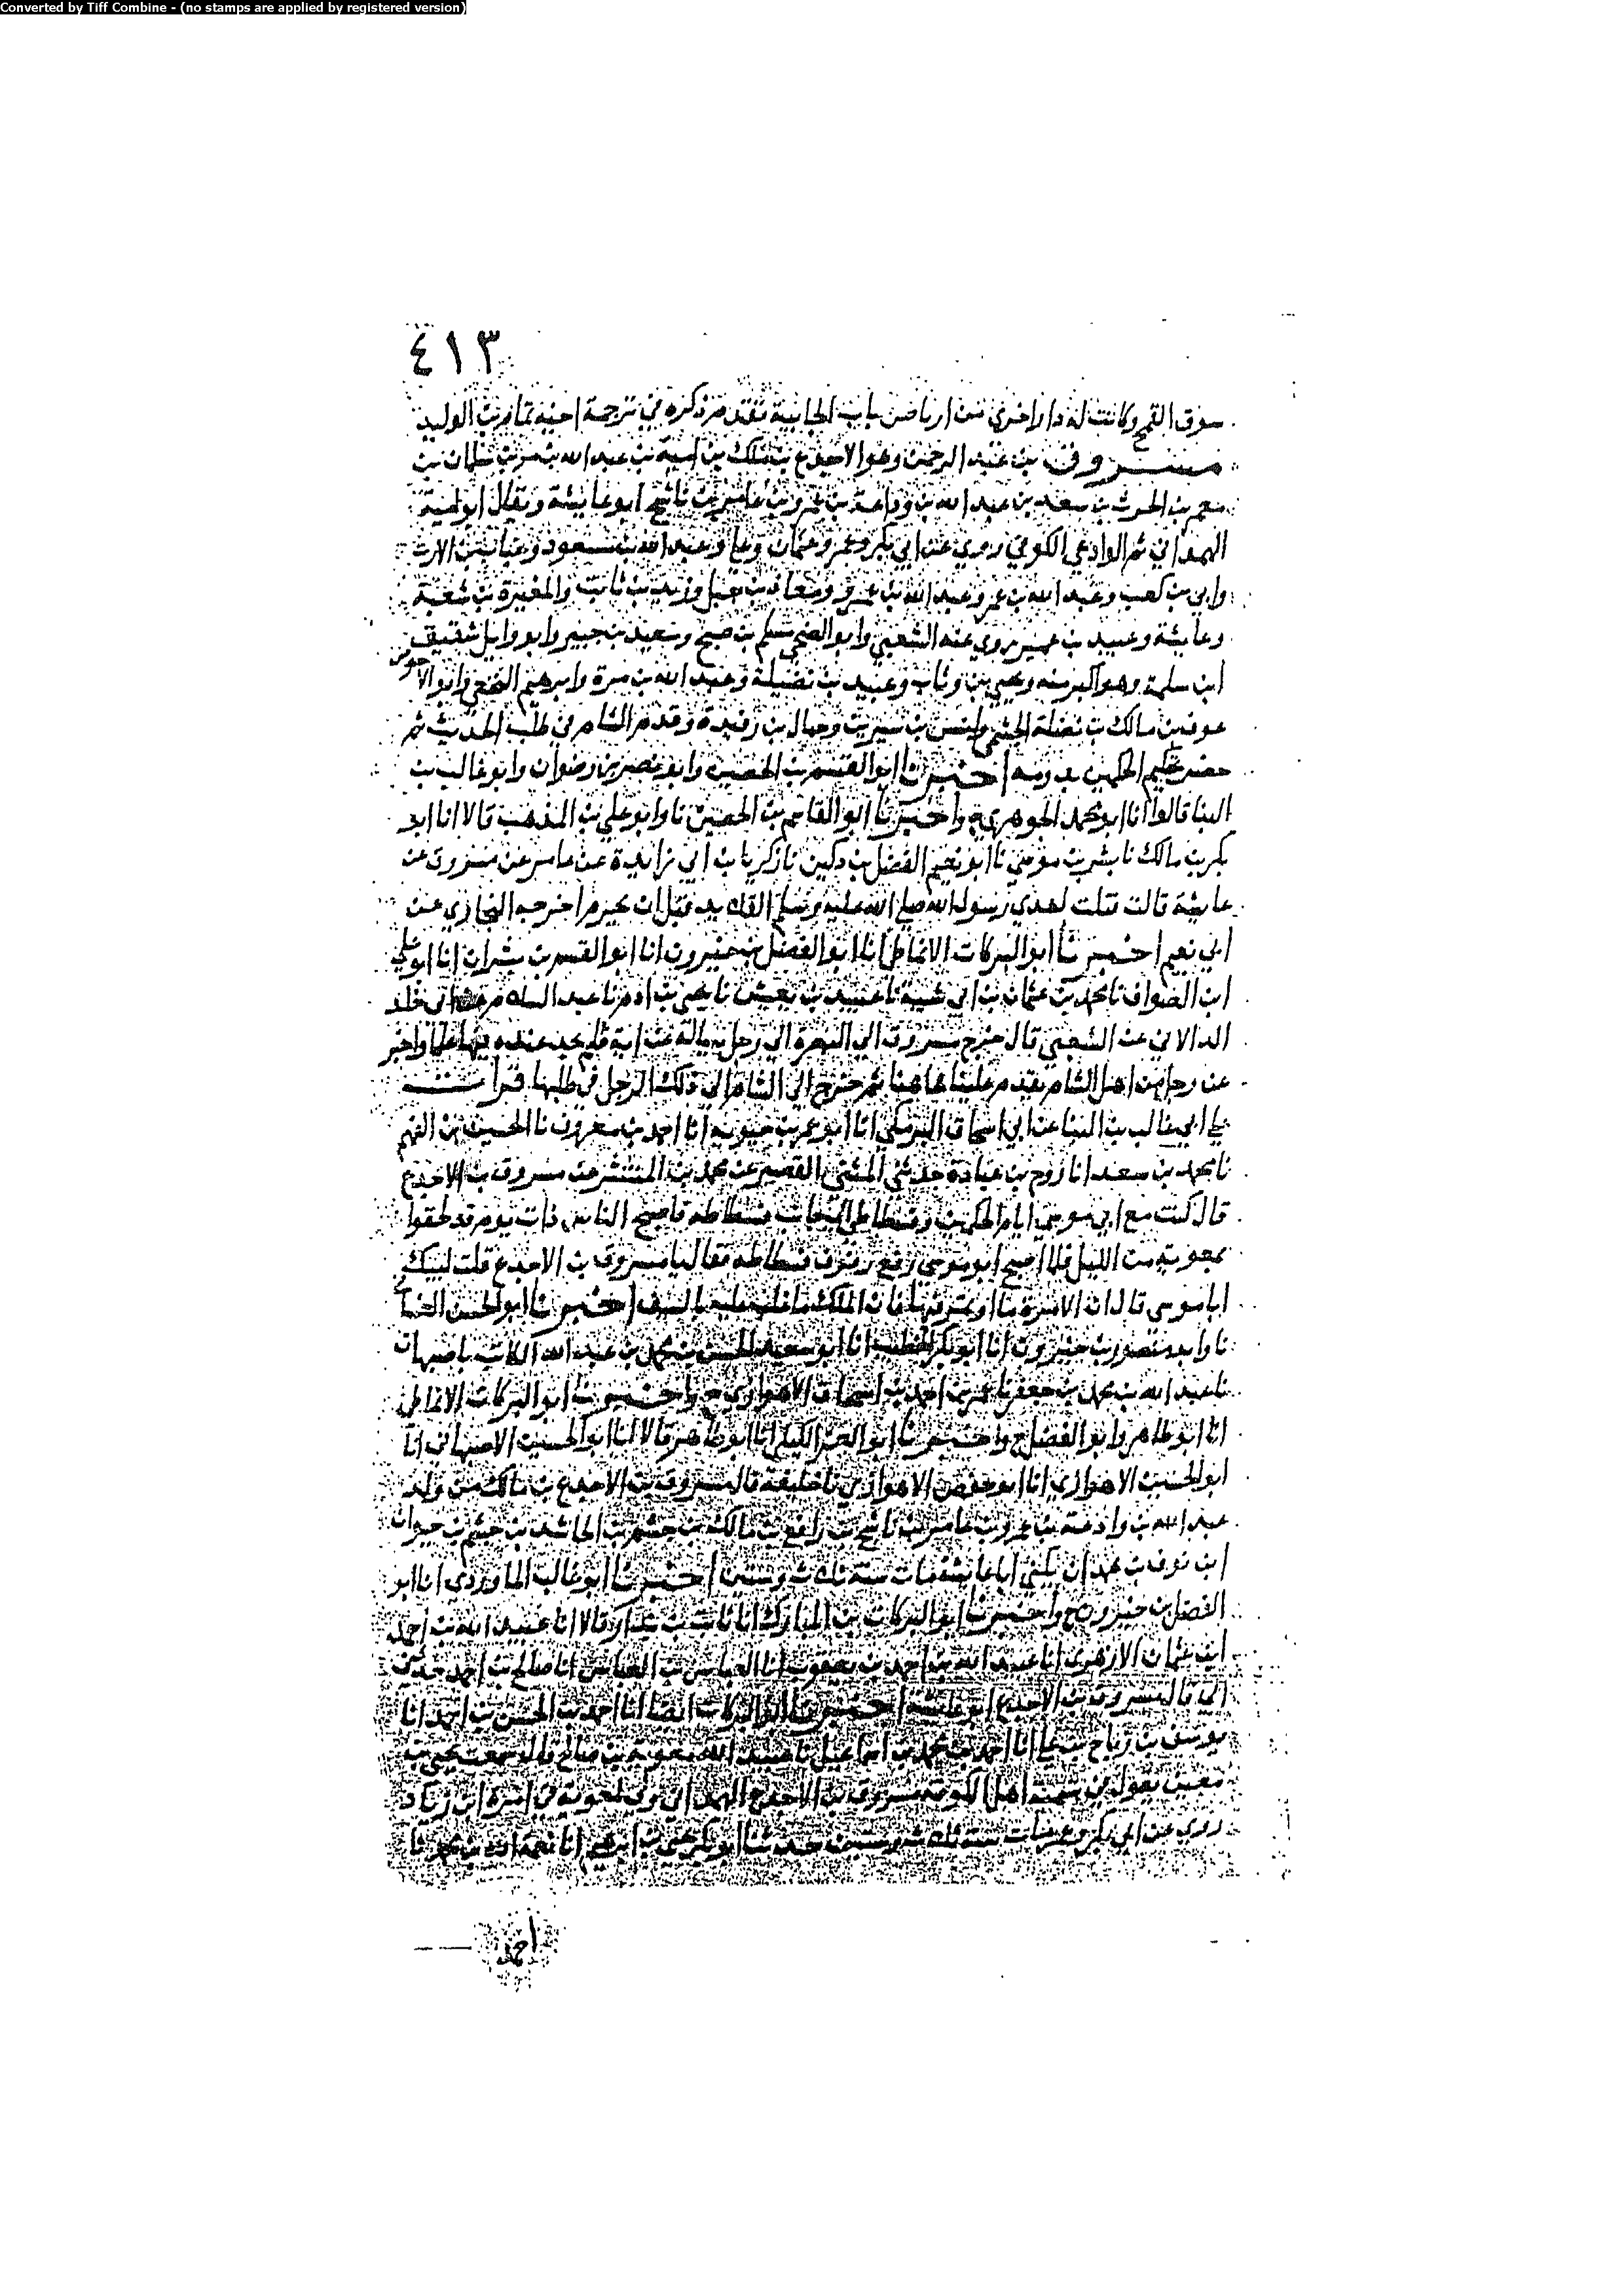 Converted by Tiff Combine - (no stamps are applied by registered version)
٤١٣
سوق القمح وكانت له دار اخري من ارباض باب الجابية تقدم ذكره في ترجمة اخيه تمام بن الوليد
مسروق بن عبد الرحمن وهو الاجدع بن ملك بن امية بن عبد الله بن مر بن سلمان بن
معمر بن الحرث بن سعد بن عبد الله بن وداعة بن عمرو بن عامر بن ناشج ابو عايشة ويقال ابو امية
الهمداني ثم الوادعي الكوفي روي عن ابي بكر وعمر وعثمان وعلي وعبد الله بن مسعود وخباب بن الارت
وابي بن كعب وعبد الله بن عمر وعبد الله بن عمرو ومعاذ بن جبل وزيد بن ثابت والمغيرة بن شعبة
وعايشة وعبيد بن عمير روي عنه الشعبي وابو الضحي مسلم بن صبيح وسعيد بن جبير وابو وايل شقيق
ابن سلمة وهو اكبر منه ويحيي بن وثاب وعبيد بن نضيلة وعبد الله بن مرة وابرهيم النخعي وابو الاحوص
عوف بن مالك بن نضلة الجشمي وانس بن سيرين وحبال بن رفيدة وقدم الشام في طلب الحديث ثم
حضر تحكيم الحكمين بدومة اخبرنا ابو القسم بن الحصين وابو نصر بن رضوان وابو غالب بن
البنا قالوا انا ابو محمد الجوهري ح واخبرنا ابو القاسم بن الحصين نا وابو علي بن المذهب قالا انا ابو
بكر بن مالك نا بشر بن موسي نا ابو نعيم الفضل بن دكين نا زكريا بن ابي زايدة عن عامر عن مسروق عن
عايشة قالت فتلت لهدي رسول الله صلي الله عليه وسلم القلايد قبل ان يحرم اخرجه البخاري عن
ابي نعيم اخبرنا ابو البركات الانماطي انا ابو الفضل بن خيرون انا ابو القسم بن بشران انا ابو علي
ابن الصواف نا محمد بن عثمان بن ابي شيبة نا عبيد بن يعيش نا يحيي بن ادم نا عبد السلام عن ابي خلد
الدالاني عن الشعبي قال خرج مسروق الي البصرة الي رجل يساله عن اية فلم يجد عنده فيها علما واخبر
عن رجل من اهل الشام يقدم علينا هاهنا ثم خرج الي الشام الي ذلك الرجل في طلبها قرات
علي ابي غالب بن البنا عن ابي اسحاق البرمكي انا ابو عمر بن حيويه انا احمد بن معروف نا الحسين بن الفهم
نا محمد بن سعد انا روح بن عبادة حدثني المثني القصير عن محمد بن المنتشر عن مسروق بن الاجدع
قال كنت مع ابي موسي ايام الحكمين وفسطاطي الي جانب فسطاطه فاصبح الناس ذات يوم قد لحقوا
بمعوية من الليل فلما اصبح ابو موسي رفع رفرف فسطاطه فقال يا مسروق بن الاجدع قلت لبيك
ابا موسي قال ان الامرة ما اوتمر فيها وان الملك ما غلب عليه بالسيف اخبرنا ابو الحسن الغساني
نا وابو منصور بن خيرون انا ابو بكر الخطيب انا ابو سعيد الحسن بن محمد بن عبد الله الكاتب باصبهان
نا عبد الله بن محمد بن جعفر نا عمر بن احمد بن اسحاق الاهوازي ح واخبرنا ابو البركات الانماطي
انا ابو طاهر وابو الفضل ح واخبرنا ابو العز الكيلي انا ابو طاهر قالا انا ابو الحسين الاصبهاني انا
ابو الحسين الاهوازي انا ابو حفص الاهوازي نا خليفة قال مسروق بن الاجدع بن مالك من ولد
عبد الله بن وادعة بن عمرو بن عامر بن ناشج بن رافع بن مالك بن جشم بن الحاشد بن جشم بن خيران
ابن نوف بن همدان يكني ابا عايشة مات سنة ثلاث وستين اخبرنا ابو غالب الماوردي انا ابو
الفضل بن خيرون ح واخبرنا ابو البركات بن المبارك انا ثابت بن بندار قالا انا عبيد الله بن احمد
ابن عثمان الازهري انا عبيد الله بن احمد بن يعقوب انا العباس بن العباس انا صالح بن احمد حدثني
ابي قال مسروق بن الاجدع ابو عايشة اخبرنا ابو البركات ايضا انا احمد بن الحسن بن احمد انا
يوسف بن رباح بن علي انا احمد بن محمد بن اسماعيل نا معوية بن صالح قال سمعت يحيي بن
معين يقول في تسمية اهل الكوفة مسروق بن الاجدع الهمداني ولي لمعوية في امرة ابن زياد
روي عن ابي بكر وعمر مات سنة ثلاث وستين حدثنا ابو بكر يحيي بن ابرهيم انا نعمة الله بن محمد نا
احمد